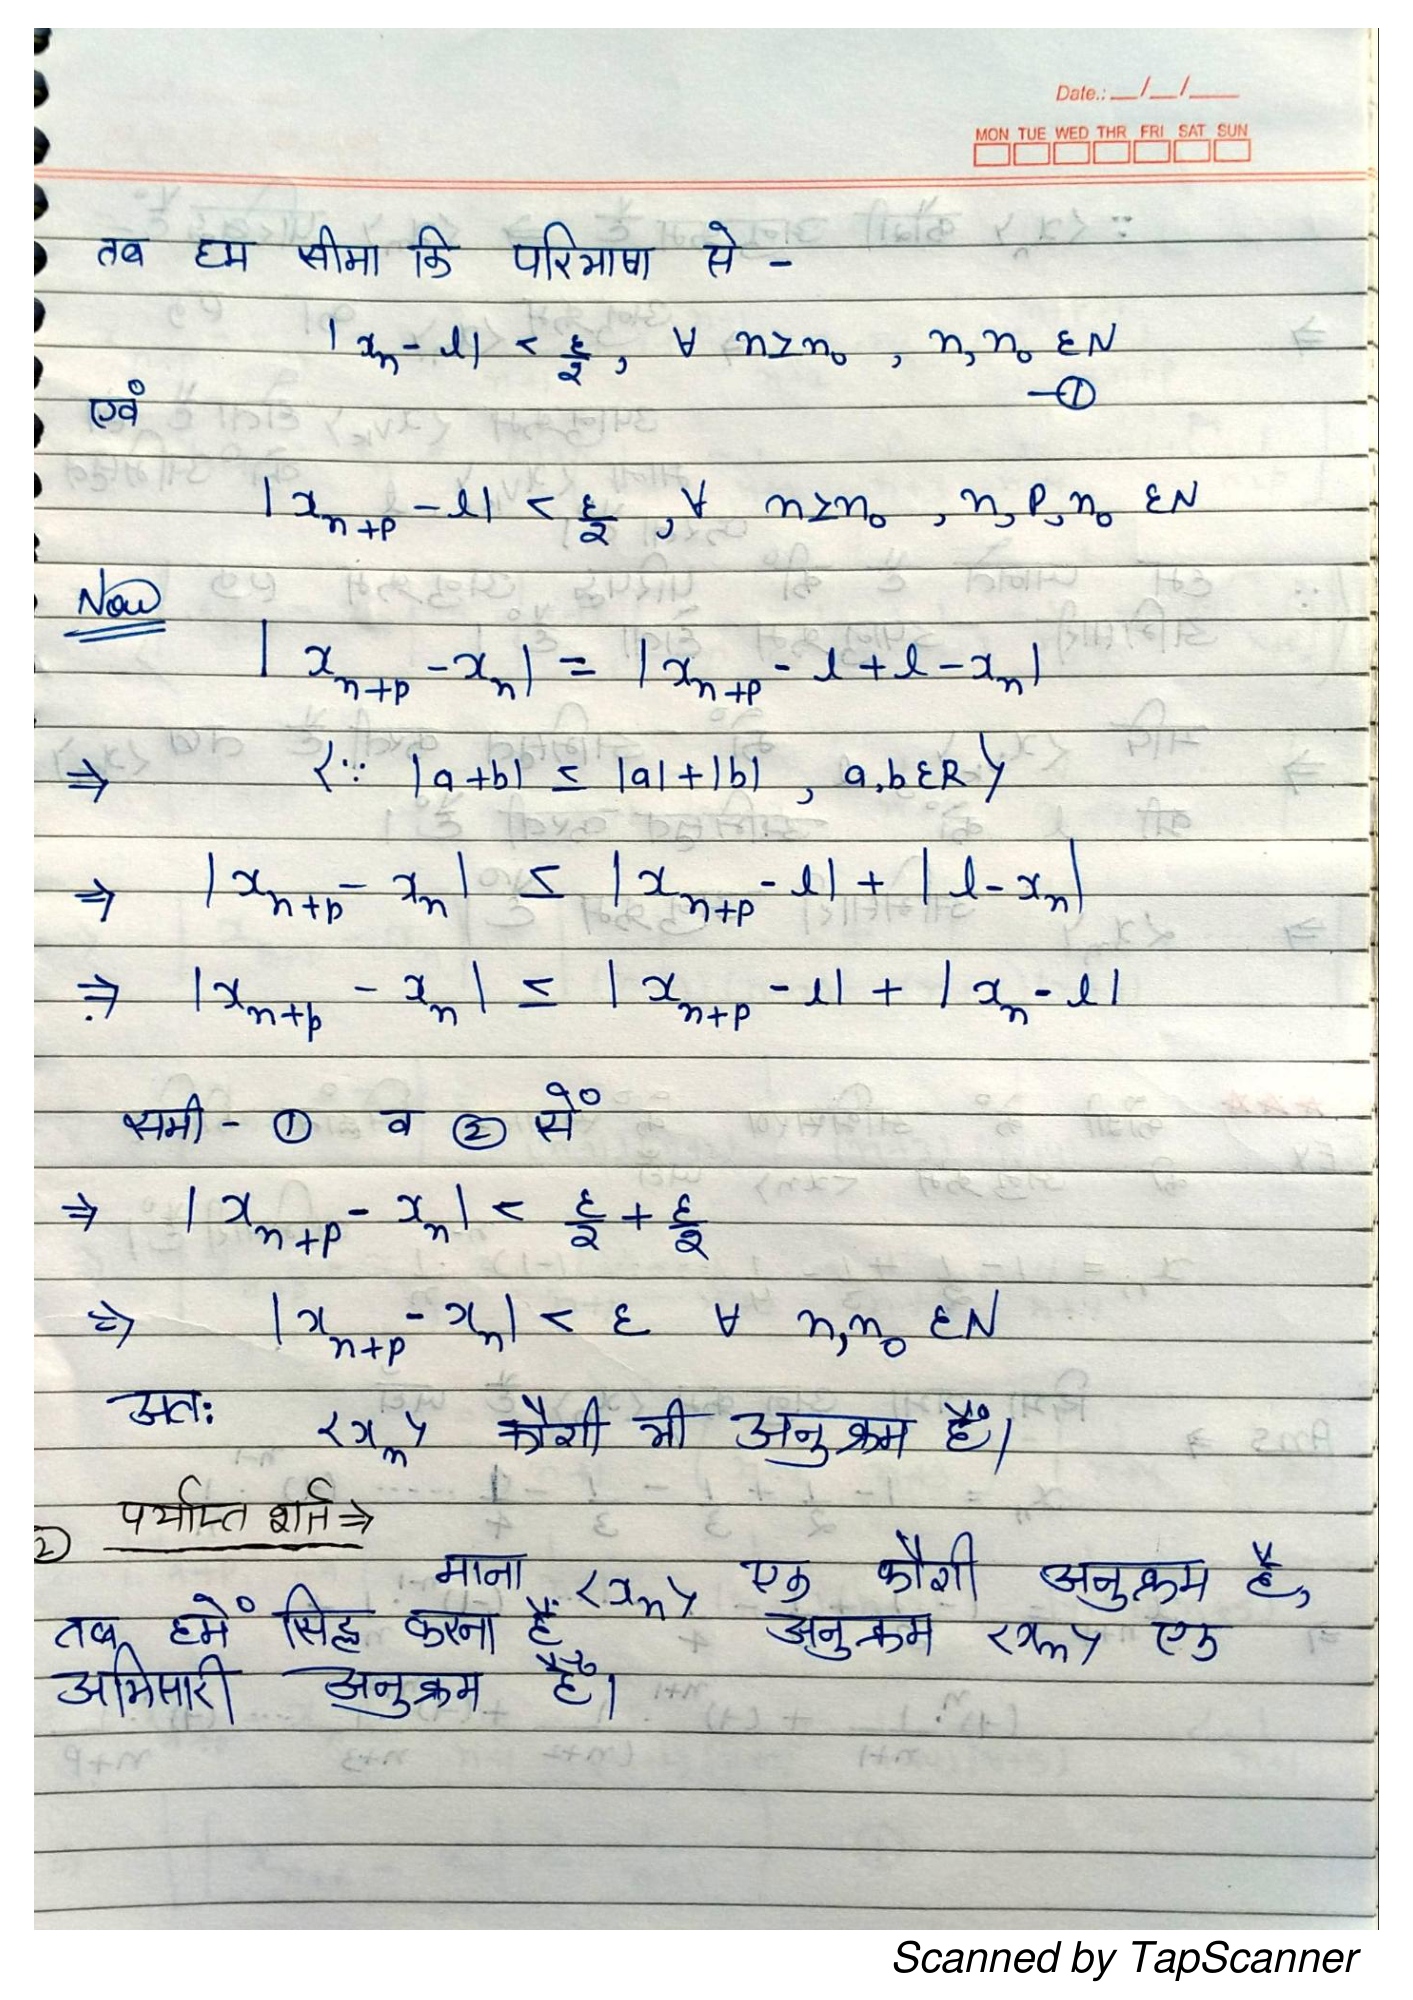 Date.: __/__/____
MON TUE WED THR FRI SAT SUN
तब हम सीमा कि परिभाषा से -
|xₙ - l| < ε/2, ∀ n≥n₀ , n, n₀ εN
—①
एवं
|xₙ₊ₚ - l| < ε/2, ∀ n≥n₀ , n, p, n₀ εN
Now
|xₙ₊ₚ - xₙ| = |xₙ₊ₚ - l + l - xₙ|
⇒ {∵ |a+b| ≤ |a|+|b| , a,bεR}
⇒ |xₙ₊ₚ - xₙ| ≤ |xₙ₊ₚ - l| + |l - xₙ|
⇒ |xₙ₊ₚ - xₙ| ≤ |xₙ₊ₚ - l| + |xₙ - l|
समी - ① व ② से
⇒ |xₙ₊ₚ - xₙ| < ε/2 + ε/2
⇒ |xₙ₊ₚ - xₙ| < ε ∀ n,n₀ εN
अतः <xₙ> कौशी भी अनुक्रम हैं।
2) पर्याप्त शर्त ⇒
माना <xₙ> एक कौशी अनुक्रम है,
तब हमें सिद्ध करना है अनुक्रम <xₙ> एक
अभिसारी अनुक्रम हैं।
Scanned by TapScanner